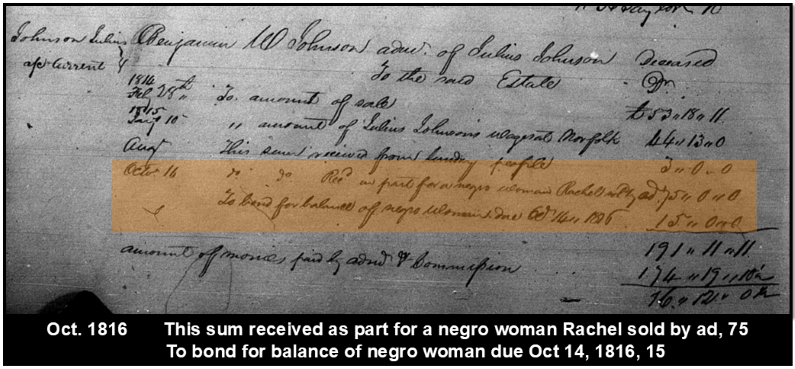 Johnson Julius
a/c Current
Benjamin W Johnson admr. of Julius Johnson Deceased
To the said Estate Dr
1814
Feb 28th To amount of sale £53 " 18 " 11
1815
Jany 10 " amount of Julius Johnson's wages at Norfolk 44 " 13 " 0
Augt This sum received from sundry people 3 " 0 " 0
Octr 14 Do Do Recd in part for a negro woman Rachel sold by ad 75 " 0 " 0
To bond for balance of negro woman due Oct 14 1816 15 " 0 " 0
191 " 11 " 11
amount of monies paid by admr & Commission 174 " 19 "
16 " 12 " 0
Oct. 1816 This sum received as part for a negro woman Rachel sold by ad, 75
To bond for balance of negro woman due Oct 14, 1816, 15